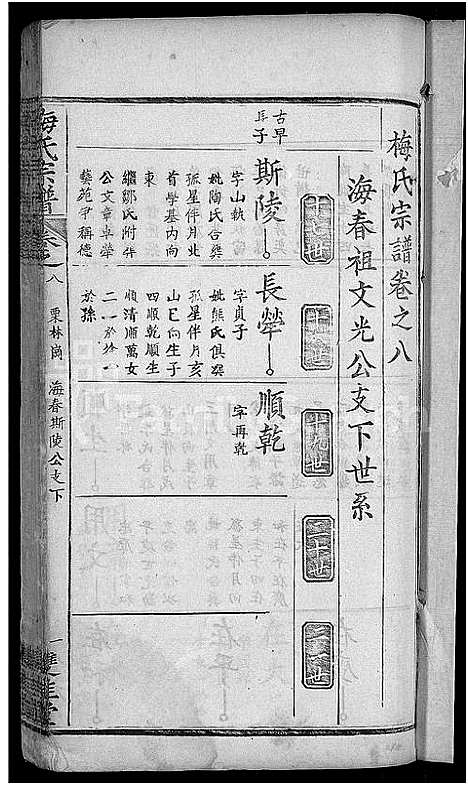 梅氏宗譜卷之八
海春祖文光公支下世系
十七世
十八世
十九世
二十世
二一世
古早
長子
斯陵
字山執
妣陶氏合塟
孤星伴月北
首學基內向
東
繼鄒氏附塟
公文章卓犖
藝苑爭稱德
長犖
字貞子
妣熊氏俱塟
孤星伴月亥
山巳向生子
四順乾順生
順清順萬女
二一於
於孫
順乾
字再乾
梅氏宗譜
卷之八
栗林崗
海春斯陵公支下
一